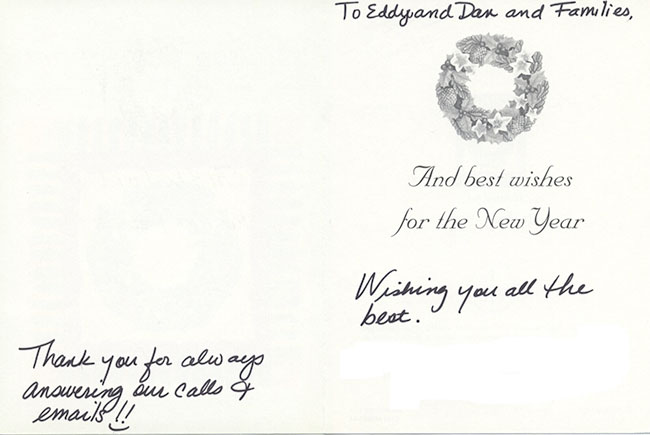 Thank you for always
answering our calls &
emails!!
To Eddy and Dan and Families,
And best wishes
for the New Year
Wishing you all the
best.